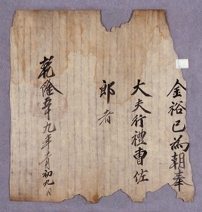 金裕已為朝奉
大夫行禮曹佐
郎者
乾隆五十九年二月初九日